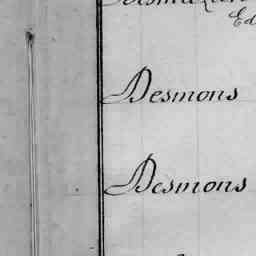 Ed
Desmons
Desmons